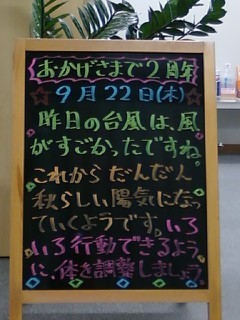 おかげさまで2周年
9月22日(木)
昨日の台風は、風
がすごかったですね。
これからだんだん
秋らしい陽気になっ
ていくようです。いろ
いろ行動できるよう
に、体を調整しましょう。